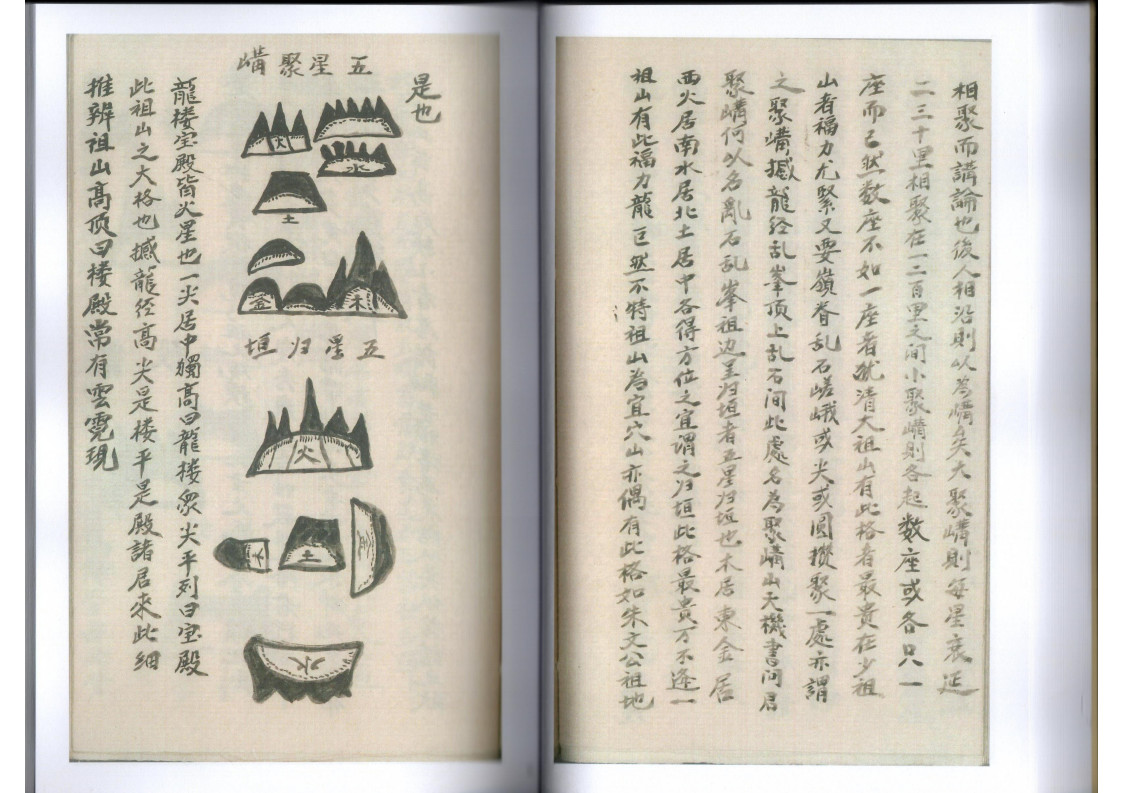 相聚而講論也後人相沿則以為嵴矣大聚嵴則每星衰延
二三十里相聚在一二百里之间小聚嵴則各起数座或各只一
座而已然数座不如一座者犹清大祖山有此格者最貴在少祖
山者福力尤緊又要嶺脊乱石嵯峨或尖或圓攒聚一處亦謂
之聚嵴撼龍经乱峯顶上乱石间此處名為聚嵴山天機書问君
聚嵴何以名亂石乱峯祖边呈归垣者五星归垣也木居東金居
西火居南水居北土居中各得方位之宜謂之归垣此格最貴万不逢一
祖山有此福力龍巨然不特祖山為宜穴山亦偶有此格如朱文公祖地
是也
五星聚嵴
火
水
土
金
木
五星归垣
火
木
土
金
水
龍楼宝殿皆火星也一尖居中獨高曰龍楼衆尖平列曰宝殿
此祖山之大格也撼龍经高尖是楼平是殿諸居來此细
推辨祖山高顶曰楼殿常有雲霓現